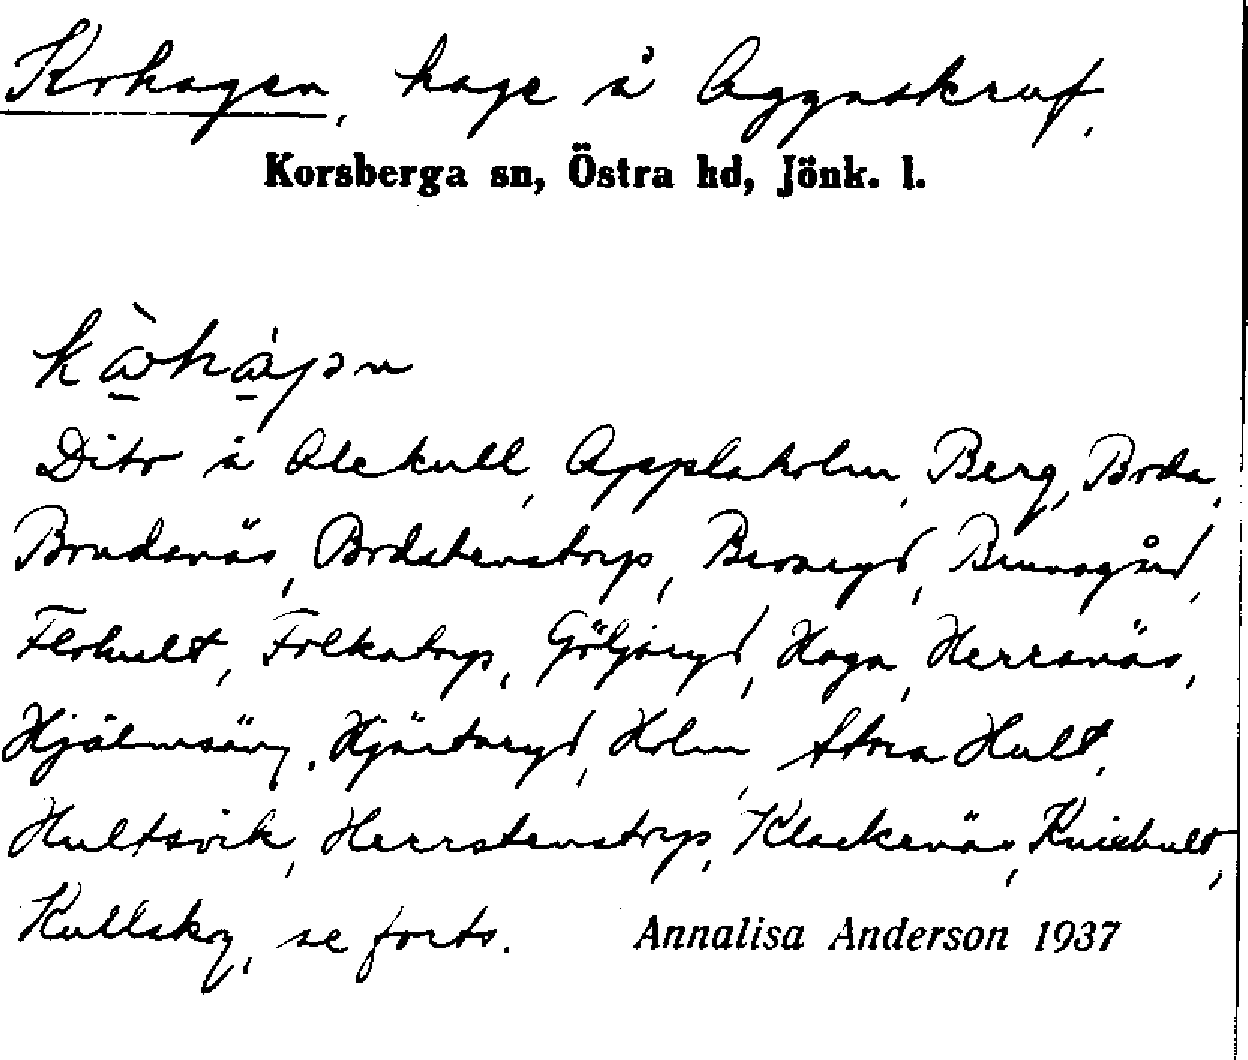 Kohagen, hage å Aggaskruf,
Korsberga sn, Östra hd, Jönk. l.
Dito å Alekull, Applaholm, Berg, Boda,
Brudanäs, Bodatenstorp, Broaryd, Brunsgård,
Flohult, Folkatorp, Göljaryd, Haga, Herranäs,
Hjälmsäng, Hjärtaryd, Holm, Stora Hult,
Hultsvik, Herrstenstorp, Klackenäs, Knishult,
Kullskog, se forts. Annalisa Anderson 1937